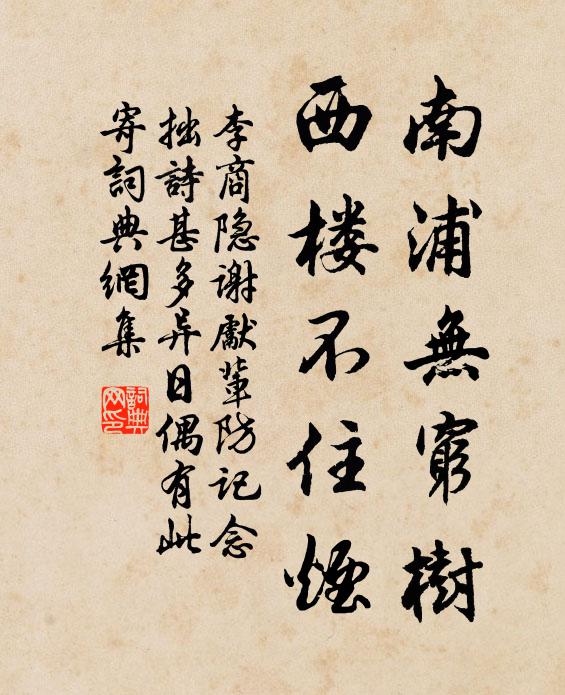 南浦無窮樹
西楼不住煙
李商隐谢獻輩防记念
拙詩甚多异日偶有此
寄詞典網集
詞典网印